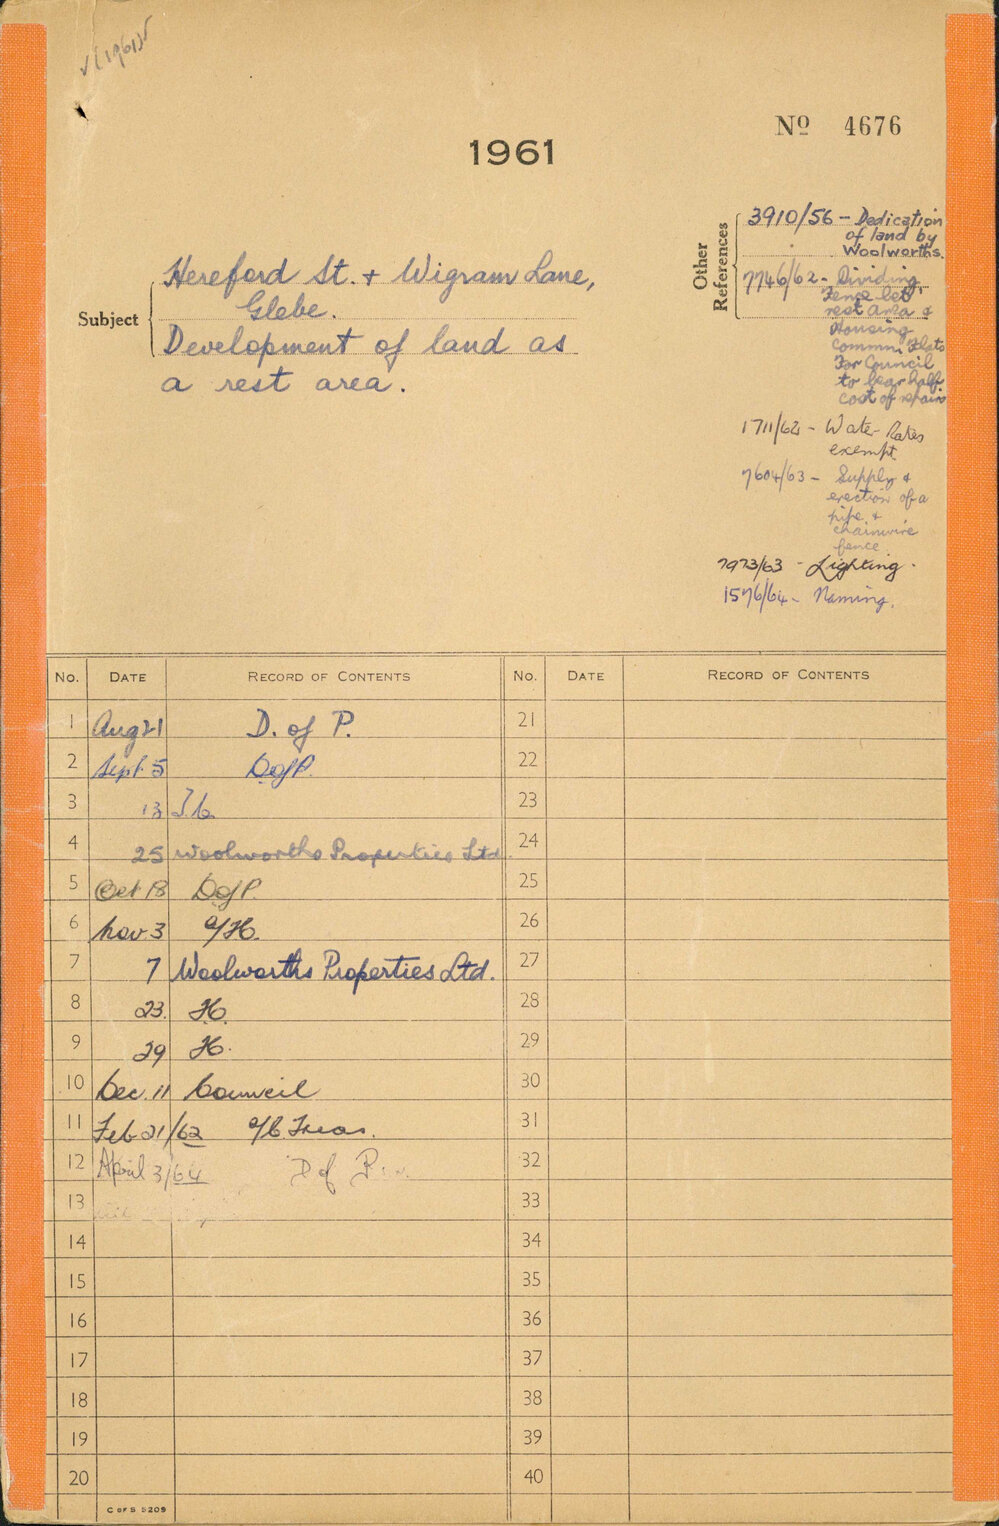 (1961)
Nº 4676
1961
Other References
3910/56 - Dedication
of land by
Woolworths.
7746/62 - Dividing
Fence bet.
rest area &
Housing
Commn. Flats
For Council
to bear half
cost of repairs
1711/62 - Water Rates
exempt.
7604/63 - Supply &
erection of a
pipe &
chainwire
fence
7973/63 - Lighting.
1576/64 - Naming.
Subject
Hereford St. + Wigram Lane,
Glebe.
Development of land as
a rest area.
No. DATE RECORD OF CONTENTS No. DATE RECORD OF CONTENTS
1 Aug 21 D. of P. 21
2 Sept. 5 D of P. 22
3 13 23
4 25 Woolworths Properties Ltd. 24
5 Oct 18 D of P. 25
6 Nov 3 26
7 7 Woolworths Properties Ltd. 27
8 23. H. 28
9 29 H. 29
10 Dec. 11 Council 30
11 Feb 21/62 31
12 April 3/64 D of P 32
13 33
14 34
15 35
16 36
17 37
18 38
19 39
20 40
C OF S 5209